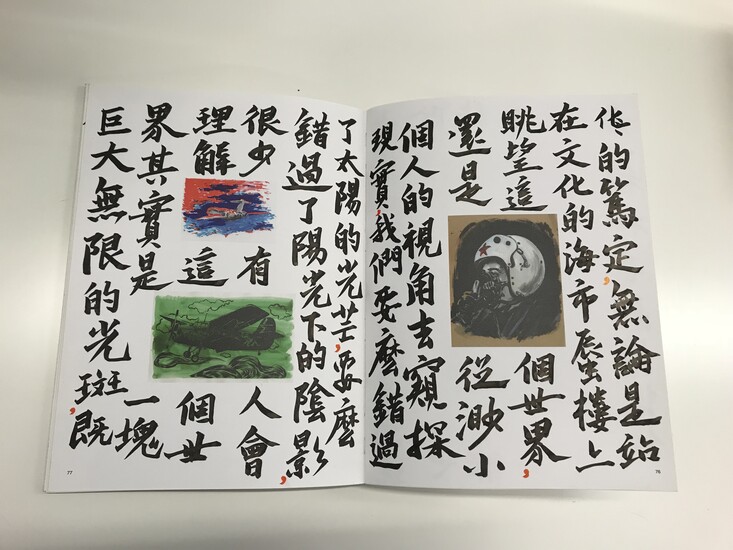 的篤定,無論是站
在文化的海市蜃樓上
眺望這個世界,
還是從渺小
個人的視角去窺探
現實,我們要麼錯過
76
了太陽的光芒,要麼
錯過了陽光下的陰影,
很少有人會
理解這個世
界其實是一塊
巨大無限的光斑,既
77